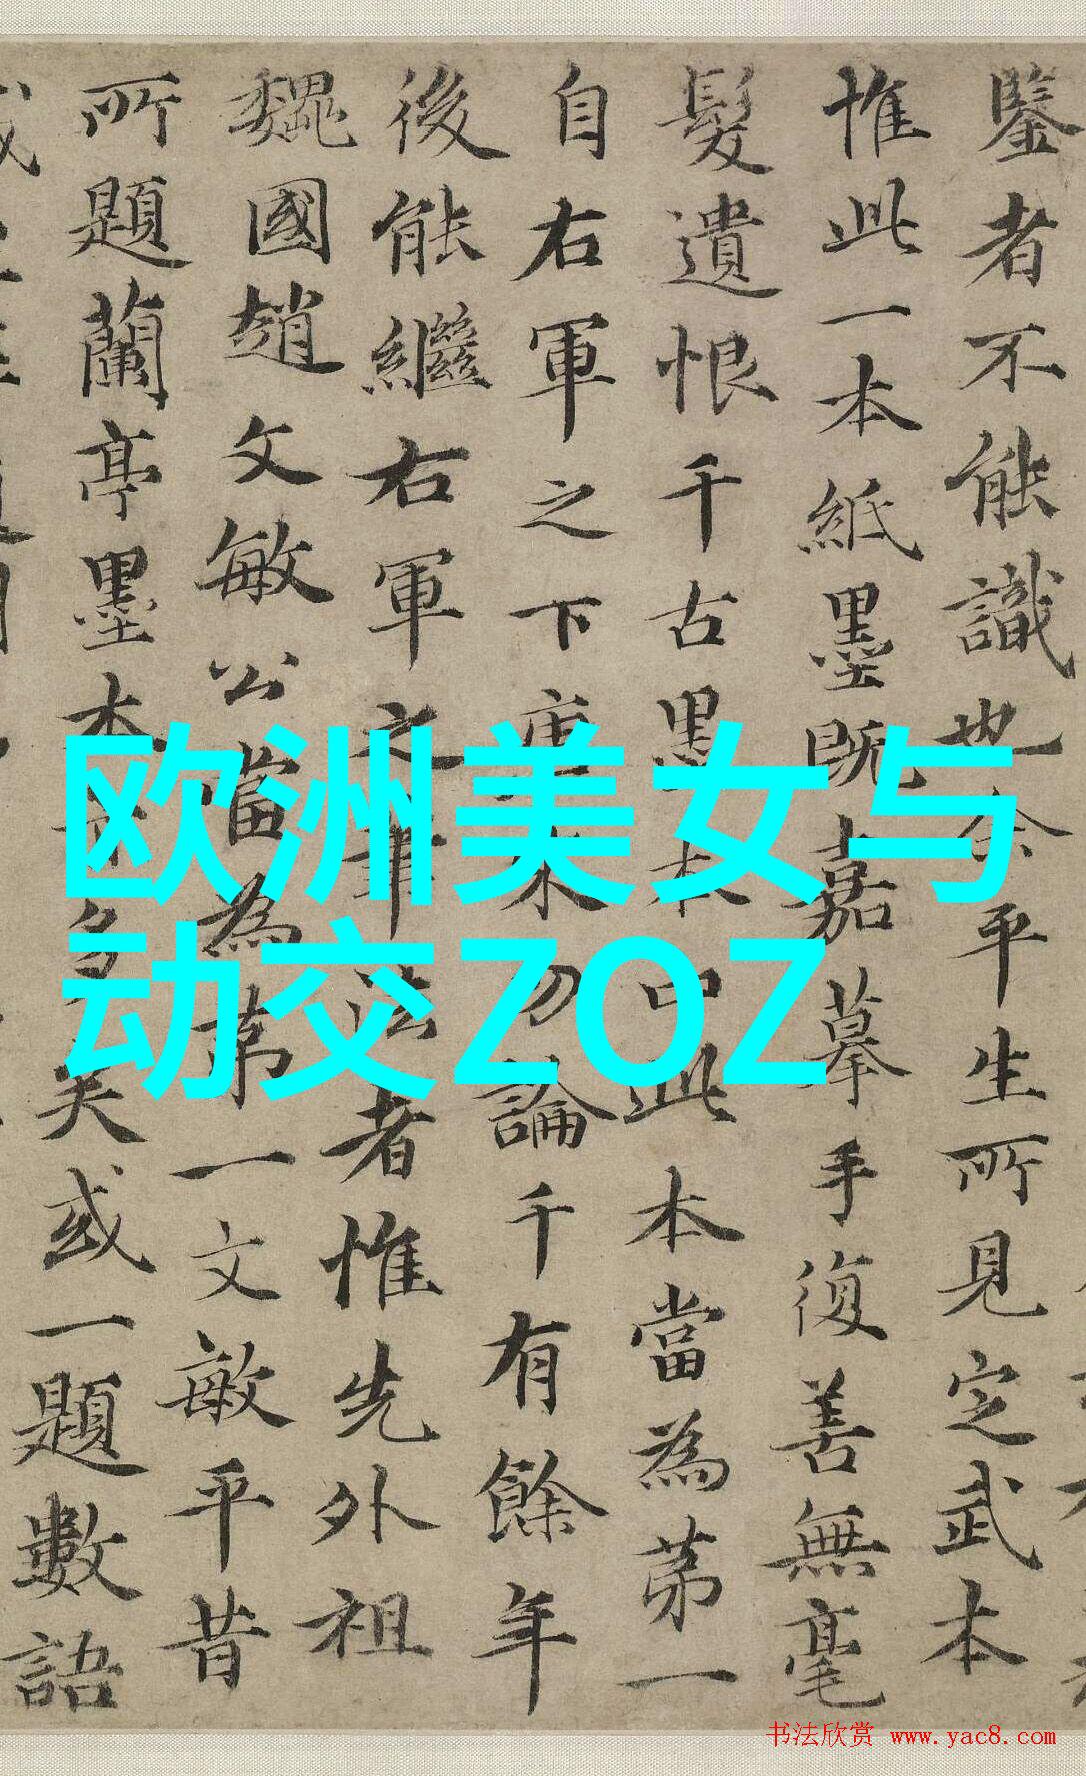 鑒者不能識也余平生所見定武本
惟此一本紙墨既嘉摹手復善無毫
髮遺恨千古墨本中此本當為苐一
自右軍之下唐宋勿論千有餘年
後能繼右軍之筆法者惟先外祖
魏國趙文敏公當為苐一文敏平昔
所題蘭亭墨本亦多矣或一題數語
欧洲美女与
动交ZOZ
书法欣赏 www.yac8.com